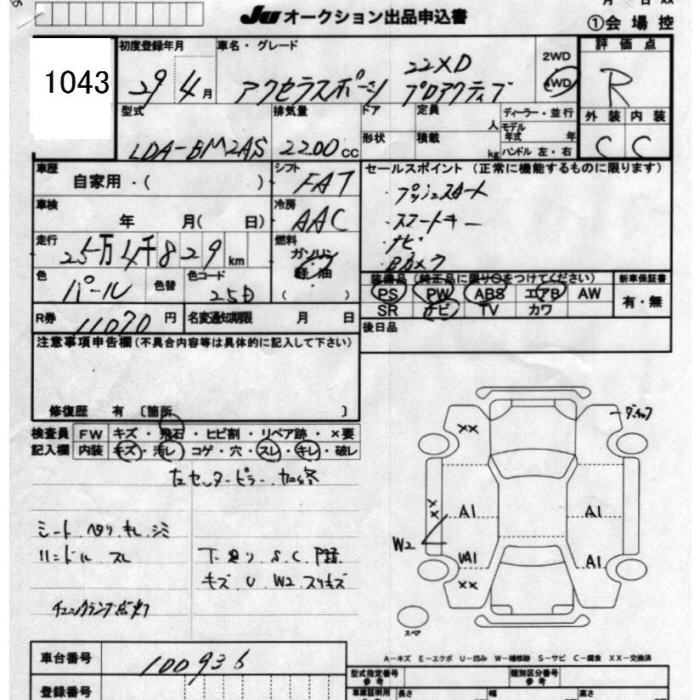 Ju オークション出品申込書
①会 場 控
1043
初度登録年月
29 4 月
車名・グレード
アクセラスポーツ 22XD プロアクティブ
2WD
4WD
評 価 点
R
型式
LDA-BM2AS
排気量
2200 cc
ドア
定員
人
ディーラー・並行
モデル年式
年
形状
積載
kg
ハンドル 左・右
外 装 内 装
C C
車歴
自家用・( )
シフト
FAT
セールスポイント (正常に機能するものに限ります)
・プッシュスタート
・スマートキー
・ナビ
・Bカメラ
車検
年 月( 日)
冷房
AAC
走行
25万4千829 km
燃料
ガソリン
軽油
( )
色
パール
色替
色コード
25D
装備品 (純正品に限り○をつけてください)
PS PW ABS エアB AW
SR ナビ TV カワ
新車保証書
有・無
R券
11070 円
名変通知期限 月 日
後日品
注意事項申告欄(不具合内容等は具体的に記入して下さい)
修復歴 有 [箇所 ]
検査員
記入欄
FW キズ・飛石・ヒビ割・リペア跡・×要
内装 キズ・汚レ・コゲ・穴・スレ・キレ・破レ
左センターピラー
シート ヘタリ キレ シミ
ハンドル スレ
チェックランプ点灯
下廻り S.C 
キズ U W2 スリキズ
××
××
A1
A1
W2
UA1
A1
××
スペア
A-キズ E-エクボ U-凹み W-補修跡 S-サビ C-腐食 XX-交換済
車台番号
100936
登録番号
型式指定番号
参考
類別区分番号
参考
車庫証明用
長さ
幅
高さ